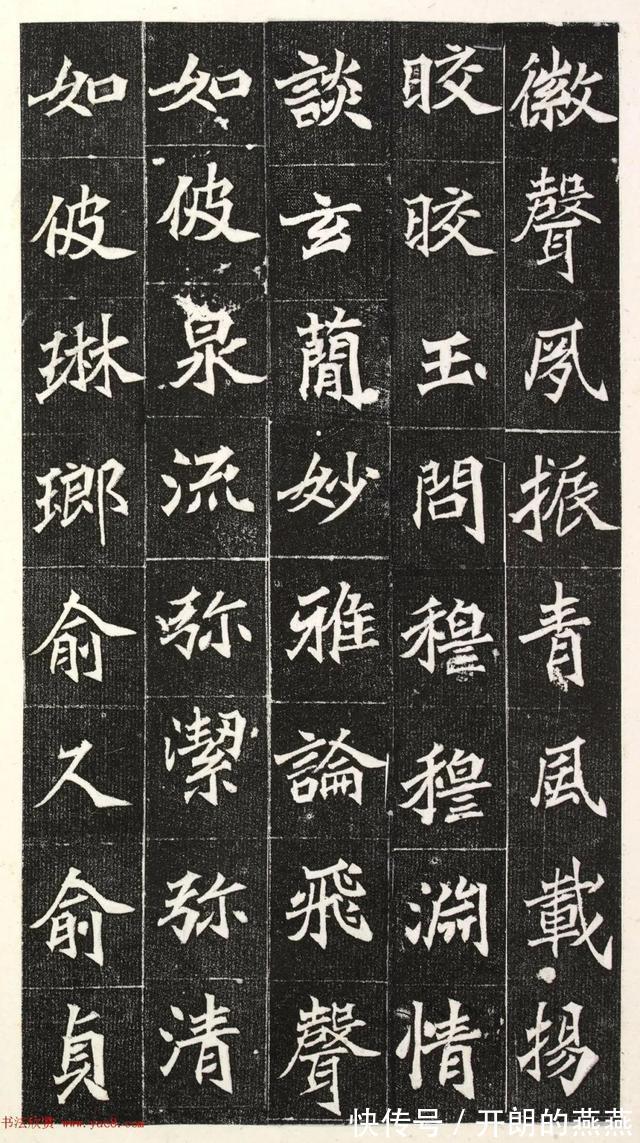 徽聲夙振青風載揚
晈晈玉問穆穆淵情
談玄簡妙雅論飛聲
如彼泉流弥潔弥清
如彼琳瑯俞久俞貞
书法欣赏 www.yac8.com
快传号 / 开朗的燕燕